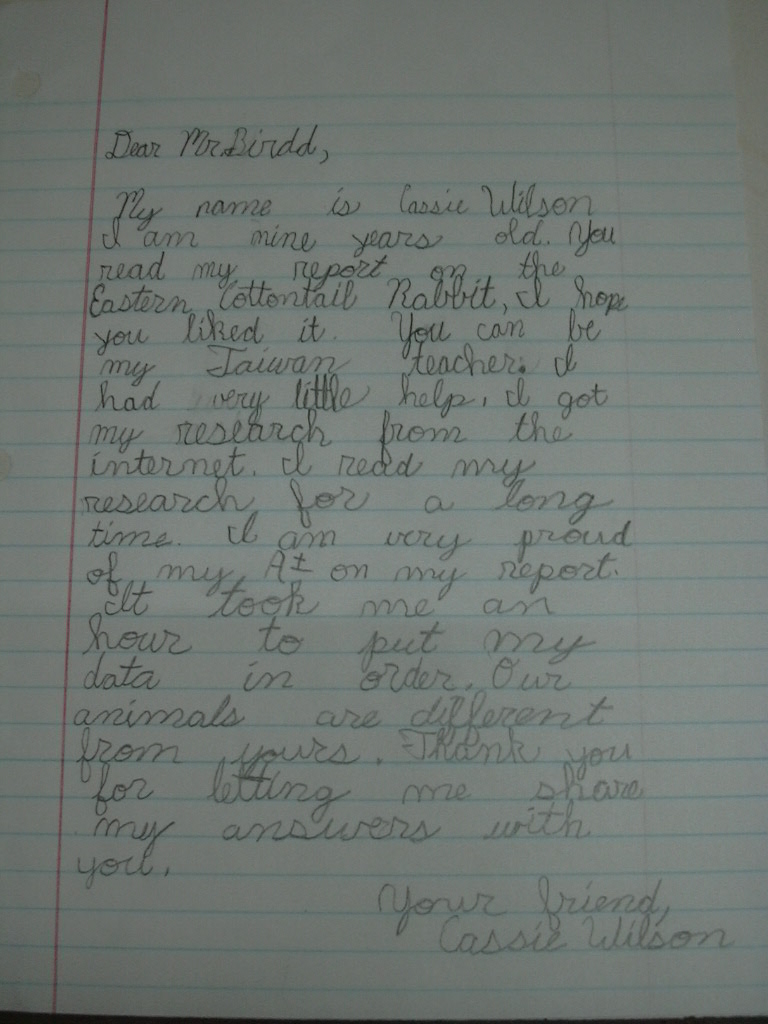 Dear Mr.Birdd,
My name is Cassie Wilson
I am nine years old. You
read my report on the
Eastern Cottontail Rabbit, I hope
you liked it. You can be
my Taiwan teacher. I
had very little help. I got
my research from the
internet. I read my
research for a long
time. I am very proud
of my A+ on my report.
It took me an
hour to put my
data in order. Our
animals are different
from yours. Thank you
for letting me share
my answers with
you.
Your friend,
Cassie Wilson